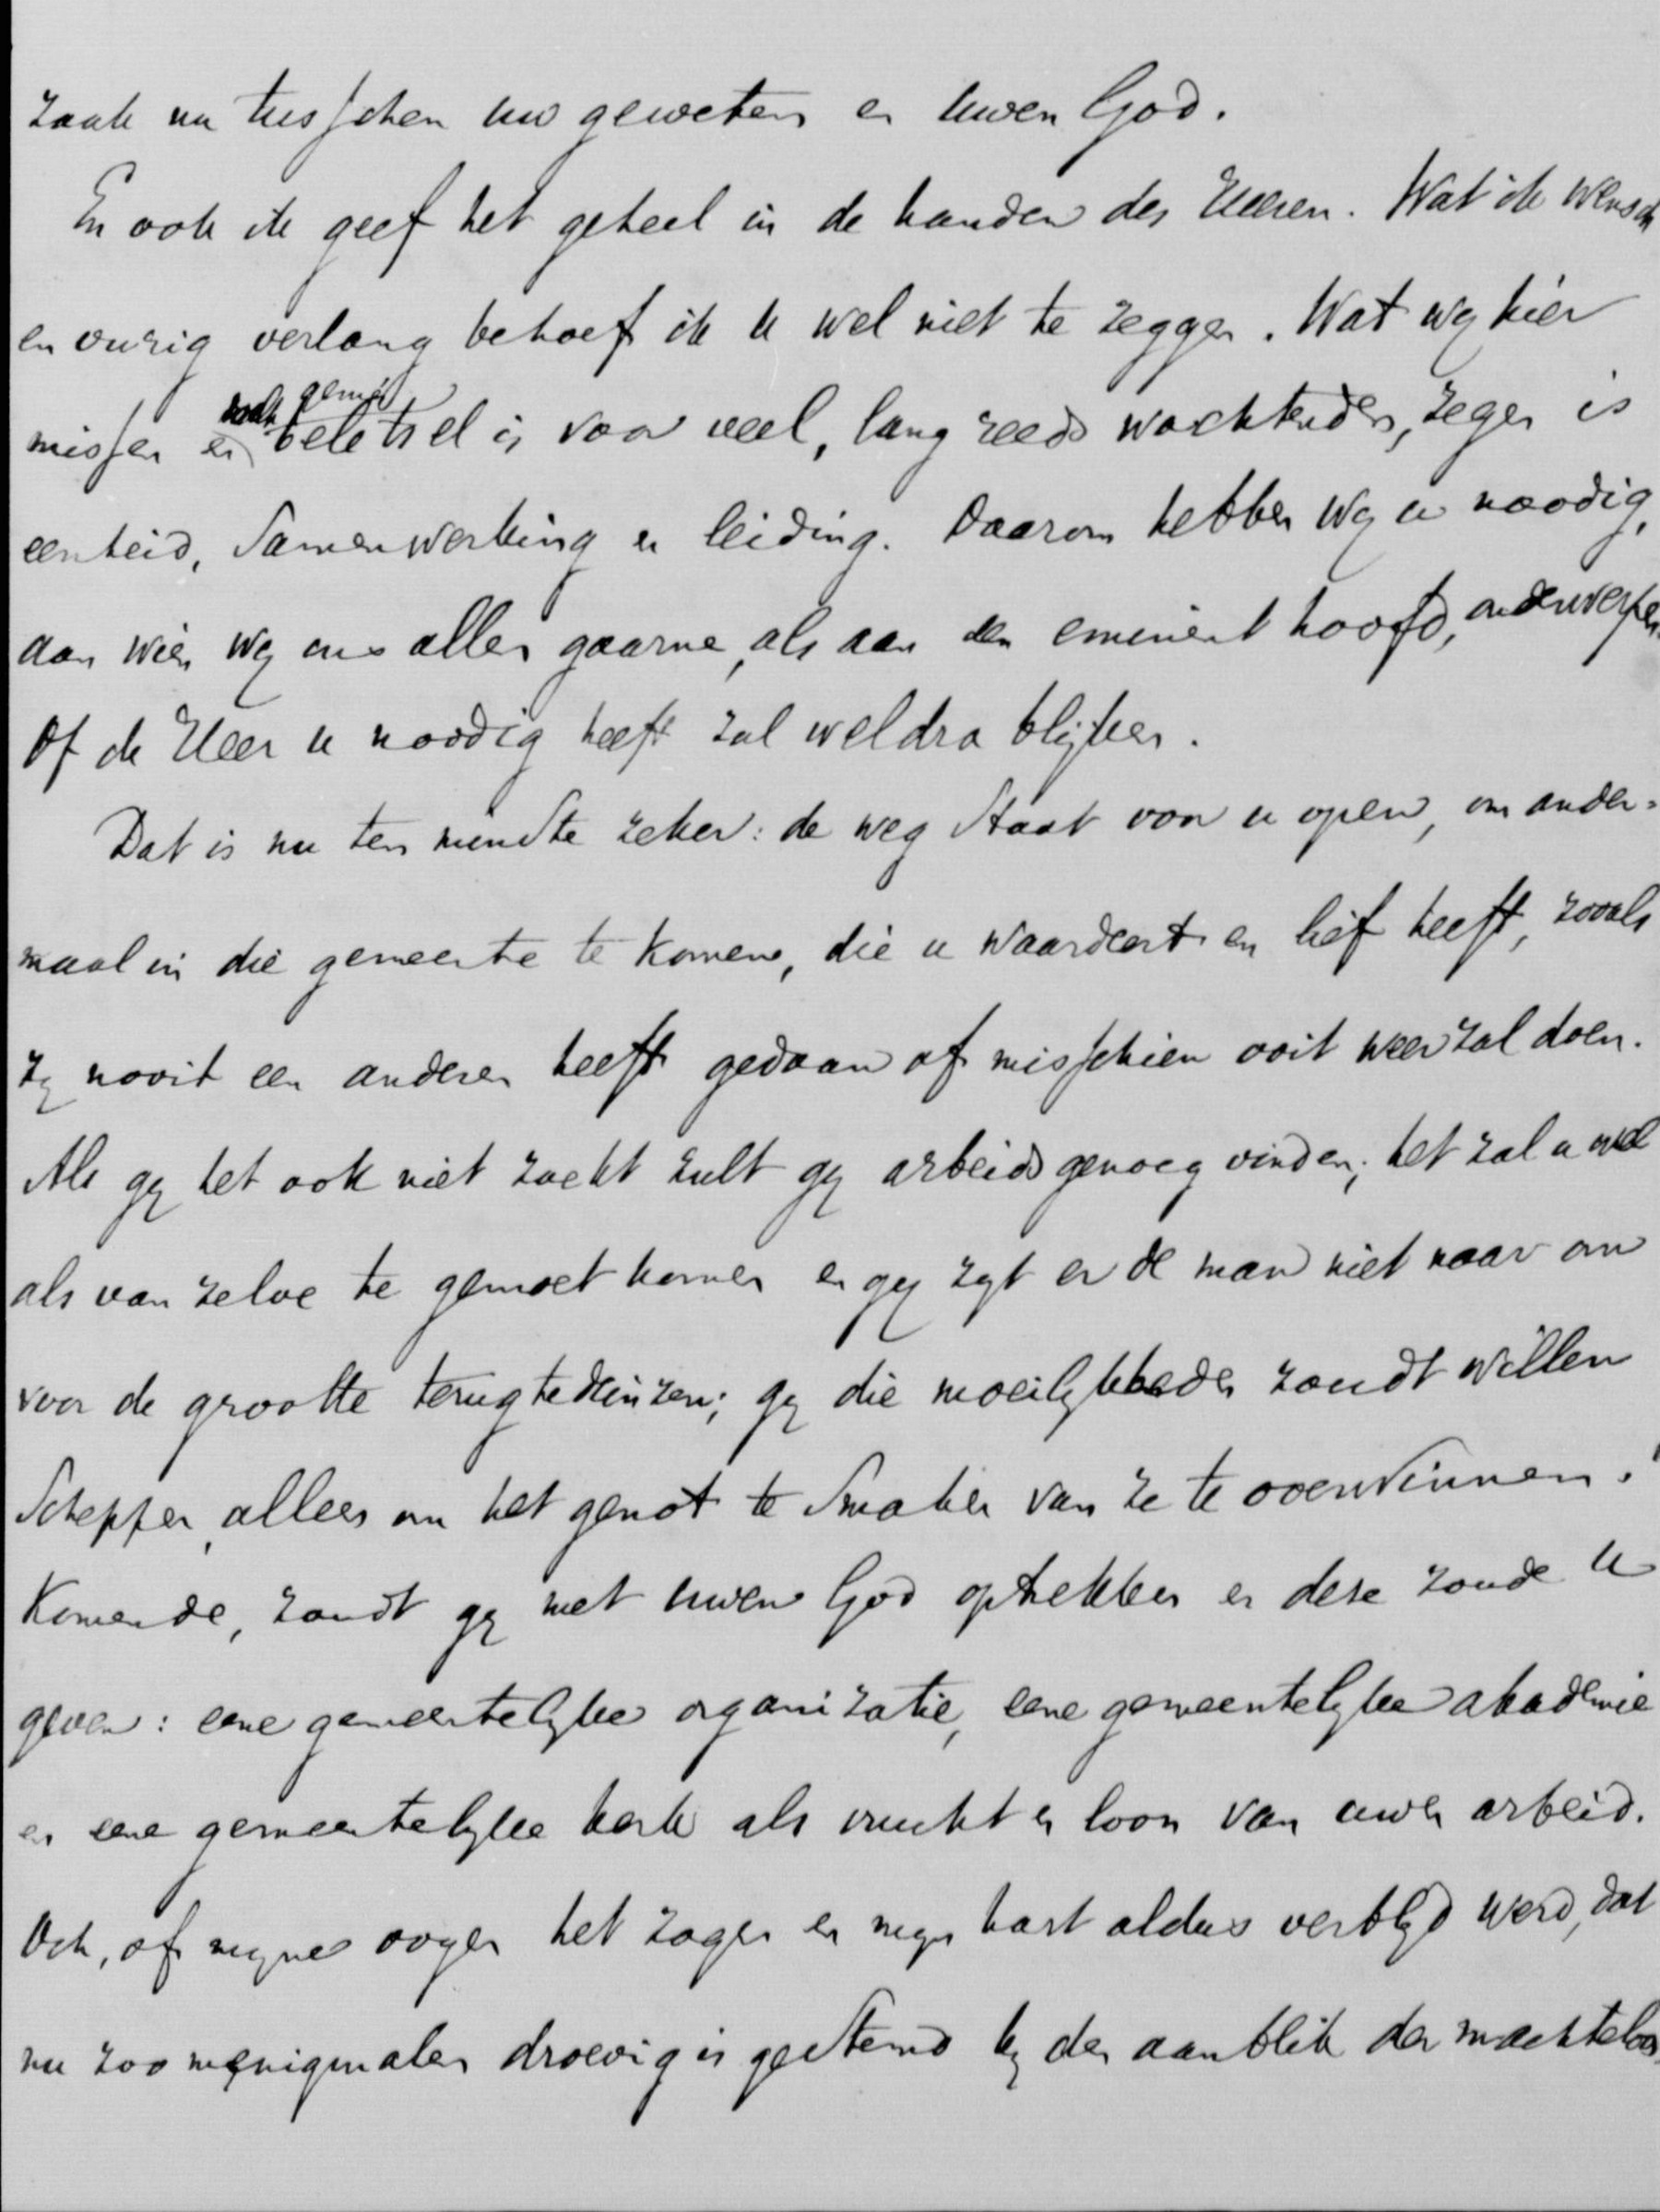 zaak nu tusschen uw geweten en uwen God.
En ook ik geef het geheel in de handen des Heeren. Wat ik wensch
en vurig verlang behoef ik u wel niet te zeggen. Wat wij hier
missen en welks gemis beletsel is voor veel, lang reeds wachtenden, zegen is
eenheid, samenwerking en leiding. Daarom hebben wij u noodig,
aan wien wij ons allen gaarne, als aan een eminent hoofd, onderwerpen.
Of de Heer u noodig heeft zal weldra blijken.
Dat is nu ten minste zeker: de weg staat voor u open, om ander-
maal in die gemeente te komen, die u waardeert en lief heeft, zooals
zij nooit een anderen heeft gedaan of misschien ooit weer zal doen.
Als gij het ook niet zoekt zult gij arbeids genoeg vinden; het zal u wel
als van zelve te gemoet komen en gij zijt er de man niet naar om
voor de grootte terug te deinzen; gij die moeilijkheden zoudt willen
scheppen, alleen om het genot te smaken van ze te overwinnen.
Komende, zoudt gij met uwen God optrekken en deze zoude u
geven: eene gemeentelijke organizatie, eene gemeentelijke akademie
en eene gemeentelijke kerk als vrucht en loon van uwen arbeid.
Och, of mijne oogen het zagen en mijn hart aldus verblijd werd, dat
nu zoo menigmalen droevig is gestemd bij den aanblik der machteloos-